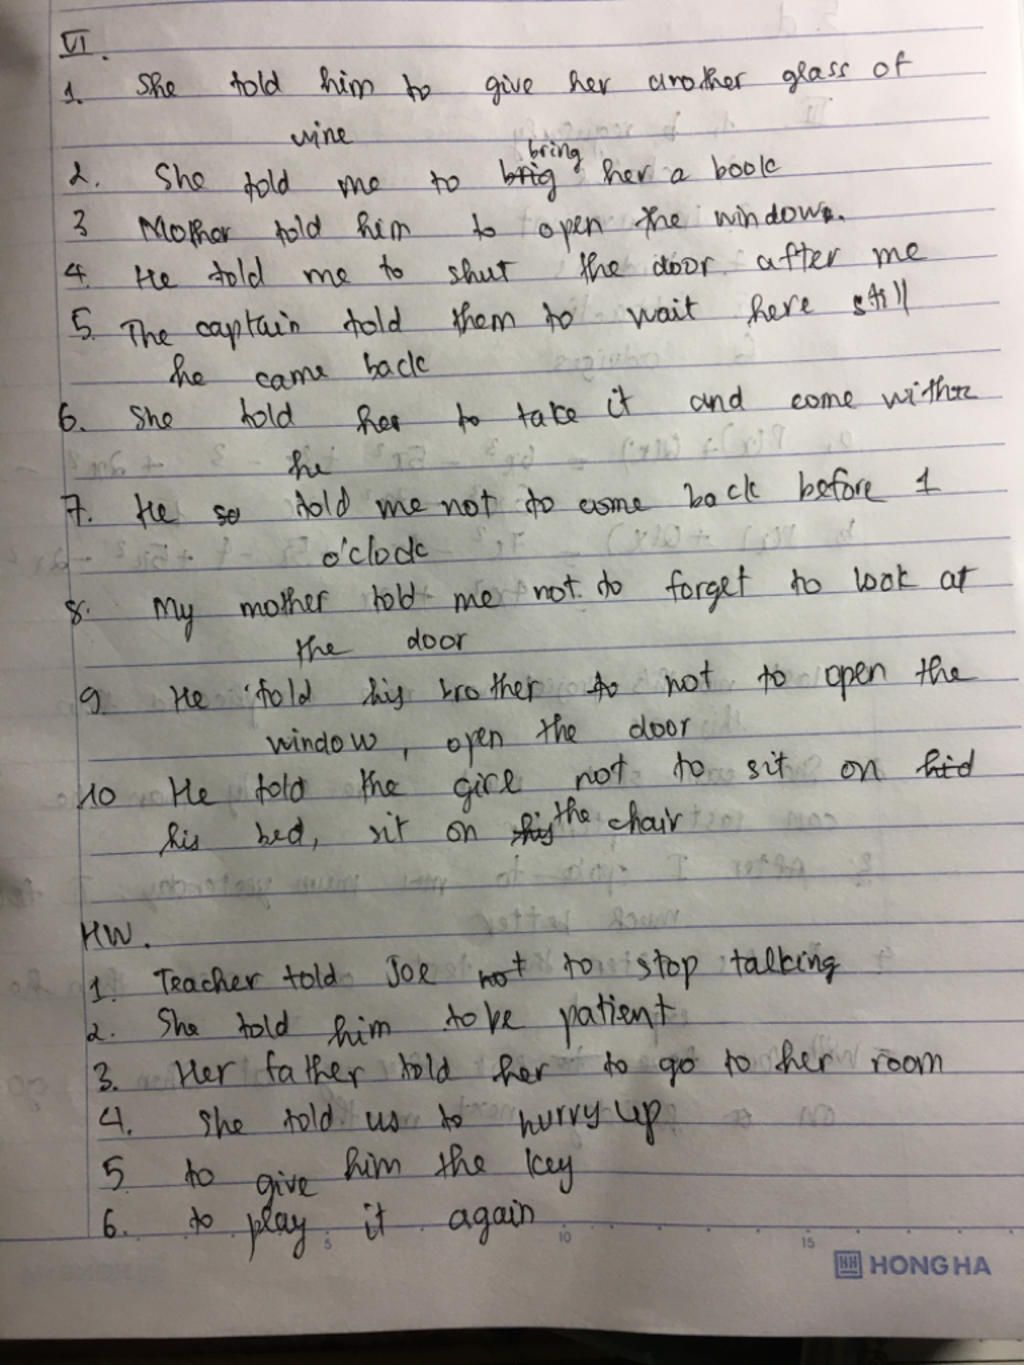 VI.
1. She told him to give her another glass of
wine
bring
2. She told me to brig her a book
3 Mother told him to open the window.
4. He told me to shut the door after me
5. The captain told them to wait here still
he came back
6. She told her to take it and come with
he
7. He so told me not to come back before 1
o'clock
8. My mother told me not to forget to look at
the door
9. He told his brother to not to open the
window, open the door
10 He told the girl not to sit on hid
his bed, sit on his the chair
HW.
1. Teacher told Joe not to stop talking
2. She told him to be patient
3. Her father told her to go to her room
4. She told us to hurry up
5 to give him the key
6. to play it again
5 10 15
HH HONG HA